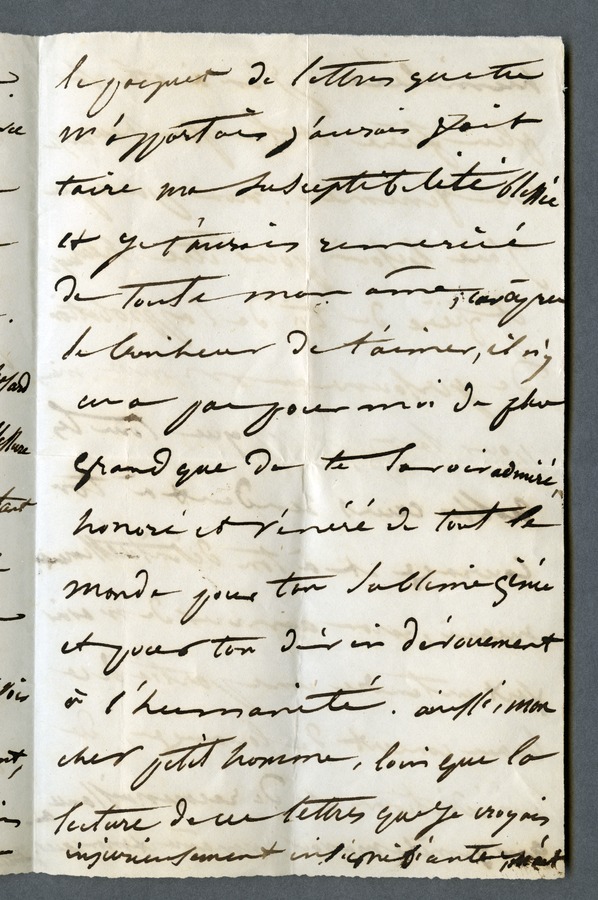 le paquet de lettres que tu
m'apportais j'aurais fait
taire ma susceptibilité blessée
et je t'aurais remercié
de toute mon âme, car après
le bonheur de t'aimer, il n'y
en a pas pour moi de plus
grand que de te savoir admiré,
honoré et vénéré de tout le
monde pour ton sublime génie
et pour ton divin dévouement
à l'humanité. aussi, mon
cher petit homme, loin que la
lecture de ces lettres que je croyais
injurieusement insignifiante